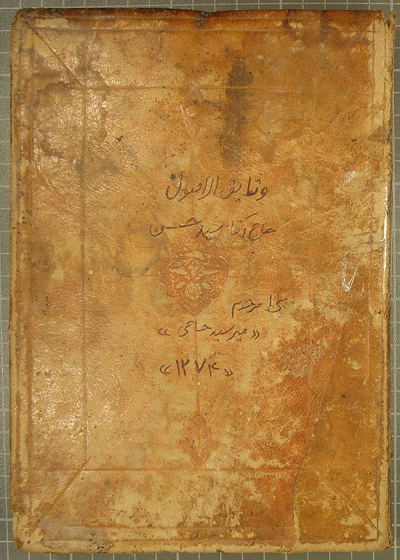 وثایق الاصول
حاج آقا سید حسن
بخط مرحوم
«میر سید حاجی»
«۱۲۷۴»